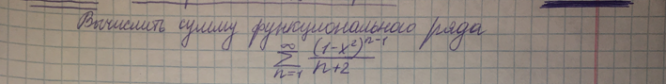 Вычислить сумму функционального ряда
\sum_{n=1}^{\infty} \frac{(1-x^2)^{n-1}}{n+2}